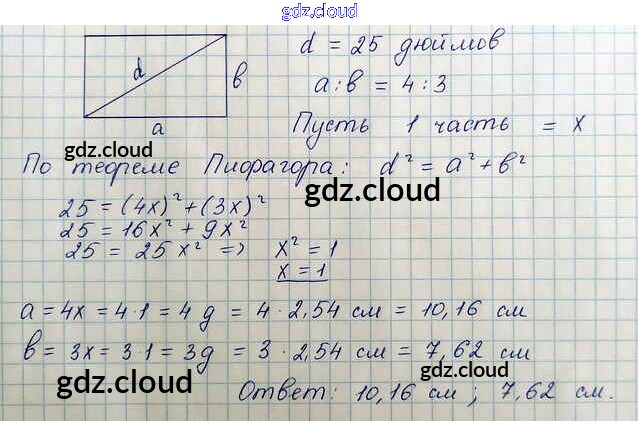 gdz.cloud
d = 25 дюймов
d
в
a : в = 4 : 3
a
Пусть 1 часть = x
gdz.cloud
По теореме Пифагора: d² = a² + в²
gdz.cloud
25 = (4x)² + (3x)²
25 = 16x² + 9x²
25 = 25x² => x² = 1
x = 1
a = 4x = 4·1 = 4 g = 4 · 2,54 см = 10,16 см
в = 3x = 3·1 = 3g = 3 · 2,54 см = 7,62 см
gdz.cloud
gdz.cloud
Ответ: 10,16 см ; 7,62 см.